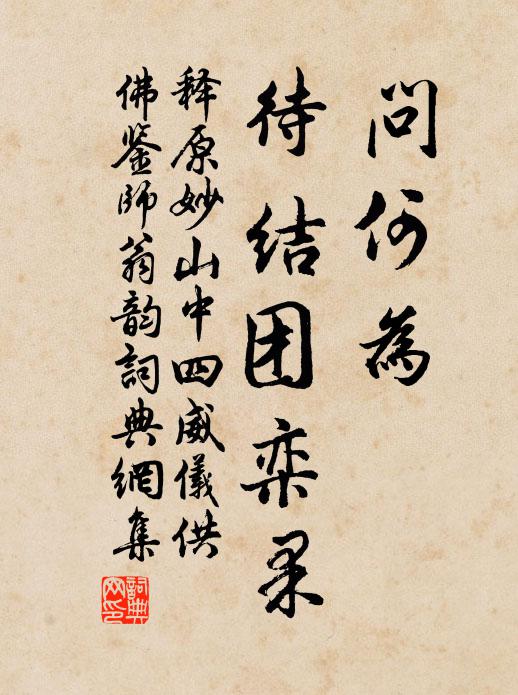 問何為
待结团栾果
释原妙山中四威儀供
佛鉴師翁韵詞典網集
詞典网印